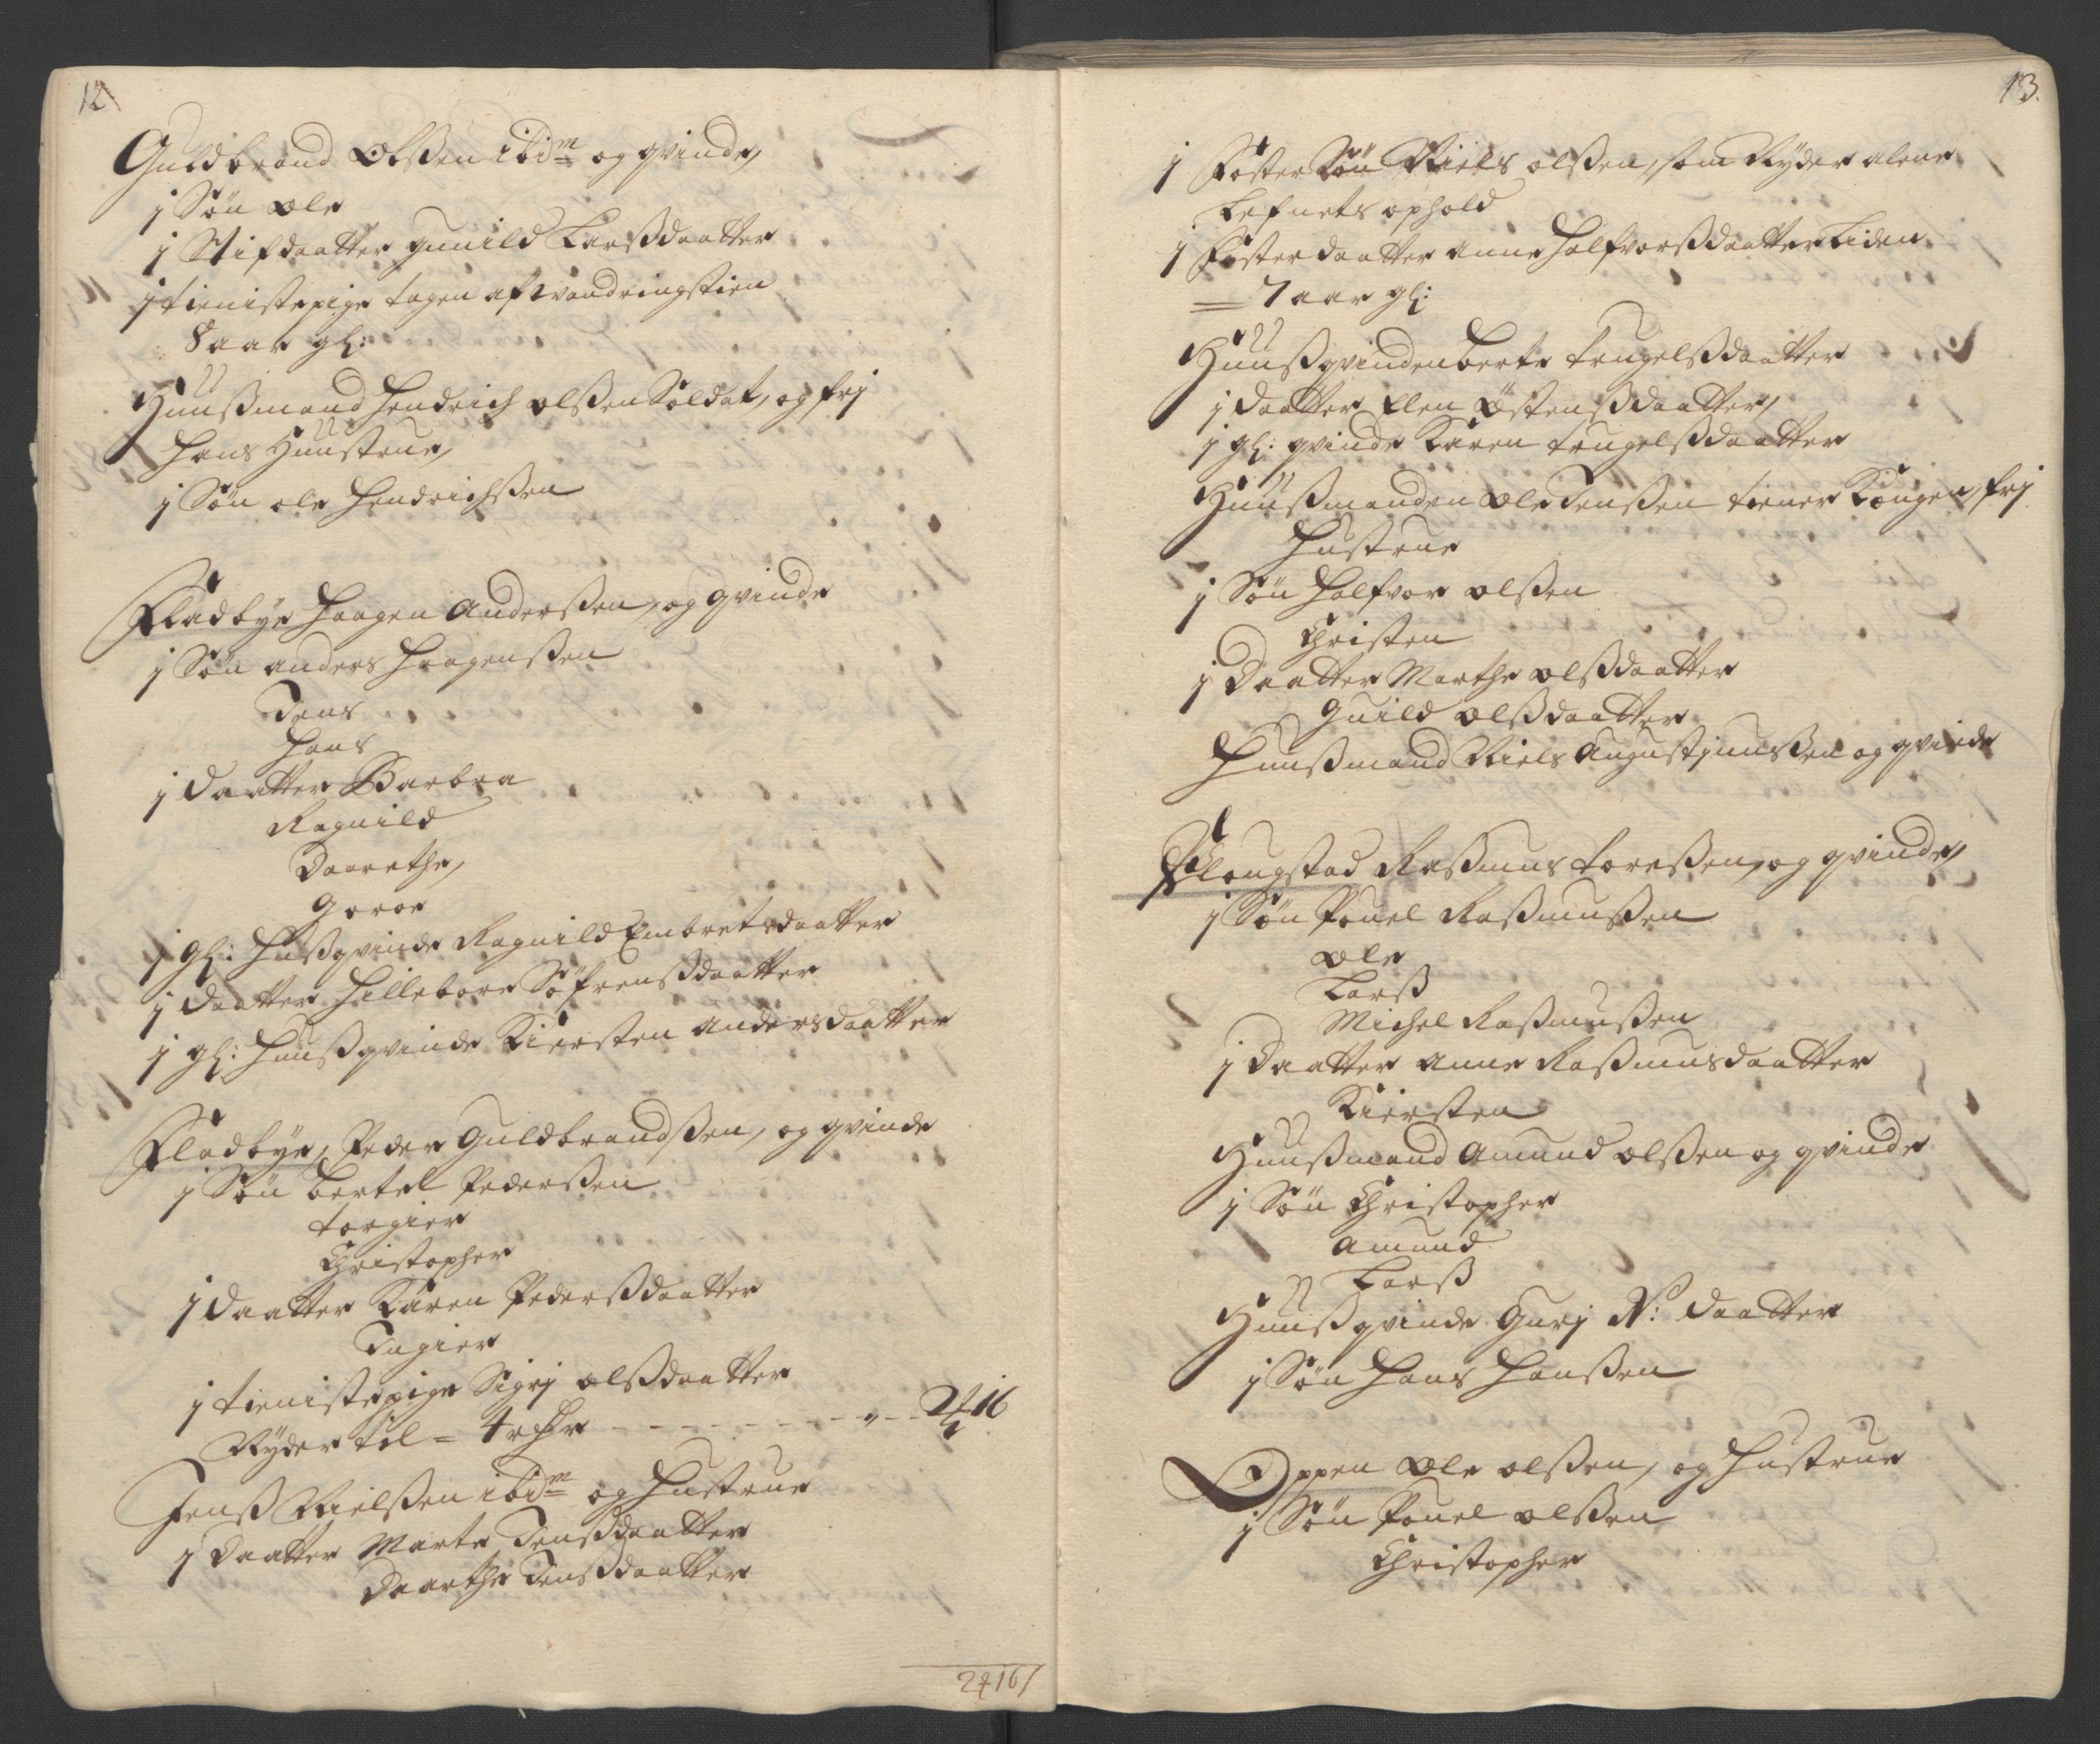 12
Guldbrand Olßen ibid<sup>m</sup> og qvinde,
1 Søn Ole
1 Stifdaatter gunild Larßdaatter
1 tienistepige tagen af vandringstien
8 aar gl:
Huußmand Hendrich olßen Soldat, og frj
Hans Huustrue,
1 Søn ole Hendrichßen
Fladbye Haagen Anderßen, og qvinde
1 Søn anders Haagenßen
Jens
Hans
1 Daatter Barbra
Ragnild
Daarethe,
Goror
1 gl: Hußqvinde Ragnild Embretsdaatter
1 Daatter Hilleborr Søfrenßdaatter
1 gl: Huußqvinde Kiersten andersdaatter
Fladbye, Peder Guldbrandßen, og qvinde
1 Søn bertel Pederßen
torgier
Christopher
1 Daatter Karen Pederßdaatter
Ingier
1 tienistepige Sigrj olßdaatter
Nyder til = 4 rdr - - - - - - - " - - 2 16
Jenß Nielßen ibid<sup>m</sup> og Hustrue
1 Daatter Marte Jenßdaatter
Daarthe Jenßdaatter
2 16
13.
1 Foster Søn Niels olßen, som Nyder alene
Lefnets ophold
1 Foster daatter anne Halfvorßdaatter Liden
= 7 aar gl:
Huußqvinden berte trugelßdaatter
1 daatter Elen Østenßdaatter,
1 gl: qvinde Karen trugelßdaatter
Huußmanden Ole Jenßen tiener Kongen, frj
Hustrue
1 Søn Halfvor olßen
Christen
1 Daatter Marthe olßdaatter
Guild olßdaatter
Huußmand Niels Augustinußen og qvinde
Flougstad Raßmus toreßen, og qvinde,
1 Søn Pouel Raßmußen
Ole
Larß
Michel Raßmußen
1 Daatter anne Raßmusdaatter
Kiersten
Huußmand Amund olßen og qvinde
1 Søn Christopher
amund
Larß
Huußqvinde Gurj N: daatter
1 Søn Hans Hanßen
Oppen Ole olßen, og Hustrue
1 Søn Pouel olßen
Christopher